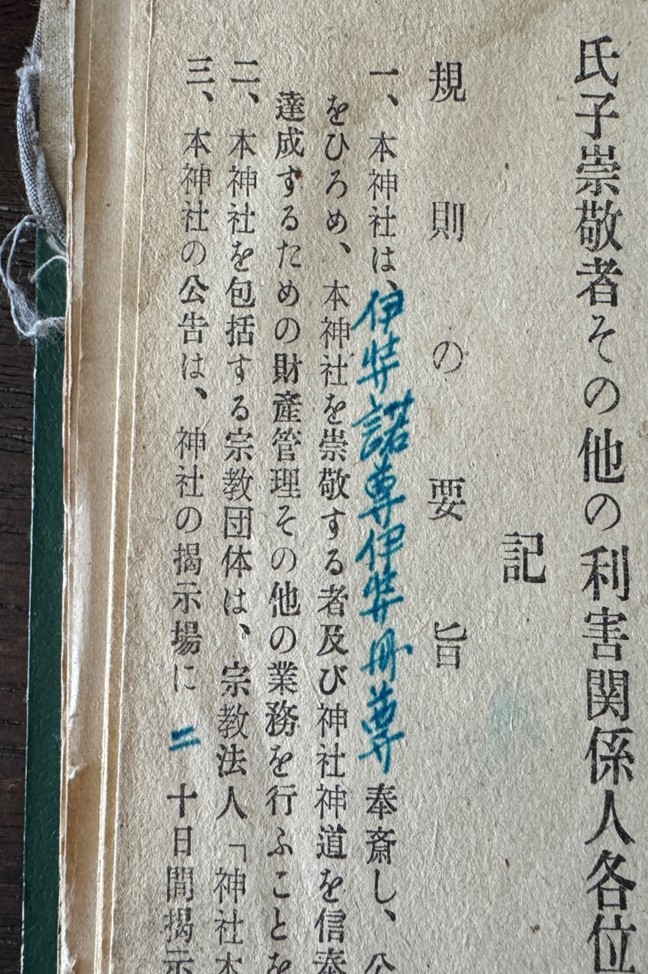 氏子崇敬者その他の利害関係人各位
記
規則の要旨
一、本神社は、伊弉諾尊伊弉冊尊奉斎し、公
をひろめ、本神社を崇敬する者及び神社神道を信奉
達成するための財産管理その他の業務を行ふことを
二、本神社を包括する宗教団体は、宗教法人「神社本
三、本神社の公告は、神社の掲示場に二十日間掲示